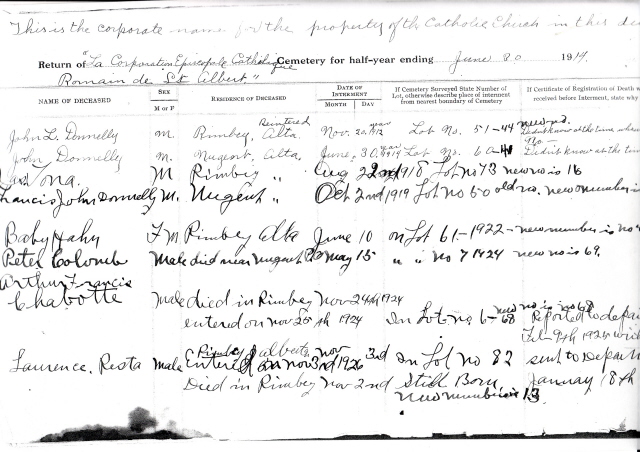 This is the corporate name for the property of the Catholic Church in this
Return of "La Corporation Episcopale Catholique Cemetery for half-year ending June 30 1914.
Romain de St Albert"
NAME OF DECEASED SEX M OR F RESIDENCE OF DECEASED DATE OF INTERMENT MONTH DAY If Cemetery Surveyed State Number of Lot, otherwise describe place of interment from nearest boundary of Cemetery If Certificate of Registration of Death received before Interment, state why
Reintered year new no.
John L. Donnelly M. Rimbey, Alta. Nov. 20, 1912 Lot No. 51-44 Didn't know at the time
year No.
John Donnelly M. Nugent, Alta. June, 30, 1914 Lot No. 60 Didn't know at the time
Iona. M Rimbey " Aug 22nd 1918 Lot no 73 new no is 16
Francis John Donnelly M. Nugent " Oct 2nd 1919 Lot no 50 old no. new number is
Baby Hahn F M Rimbey Alta June 10 on Lot 61-1922- new number is no
Peter Colomb Male died near Nugent May 15 " " no 7 1924 new no is 69.
Arthur Francis
Chabotte Male died in Rimbey Nov 24th 1924 new no is no 68
entered on Nov 25th 1924 In Lot no. 6-68 Reported to
Feb 9th 1925
Rimbey Alberta Nov 3rd
Laurence, Resta Male Entered on Nov 3rd 1926 In Lot No 82 sent to
Died in Rimbey Nov 2nd Still Born January 18th
new number is 13